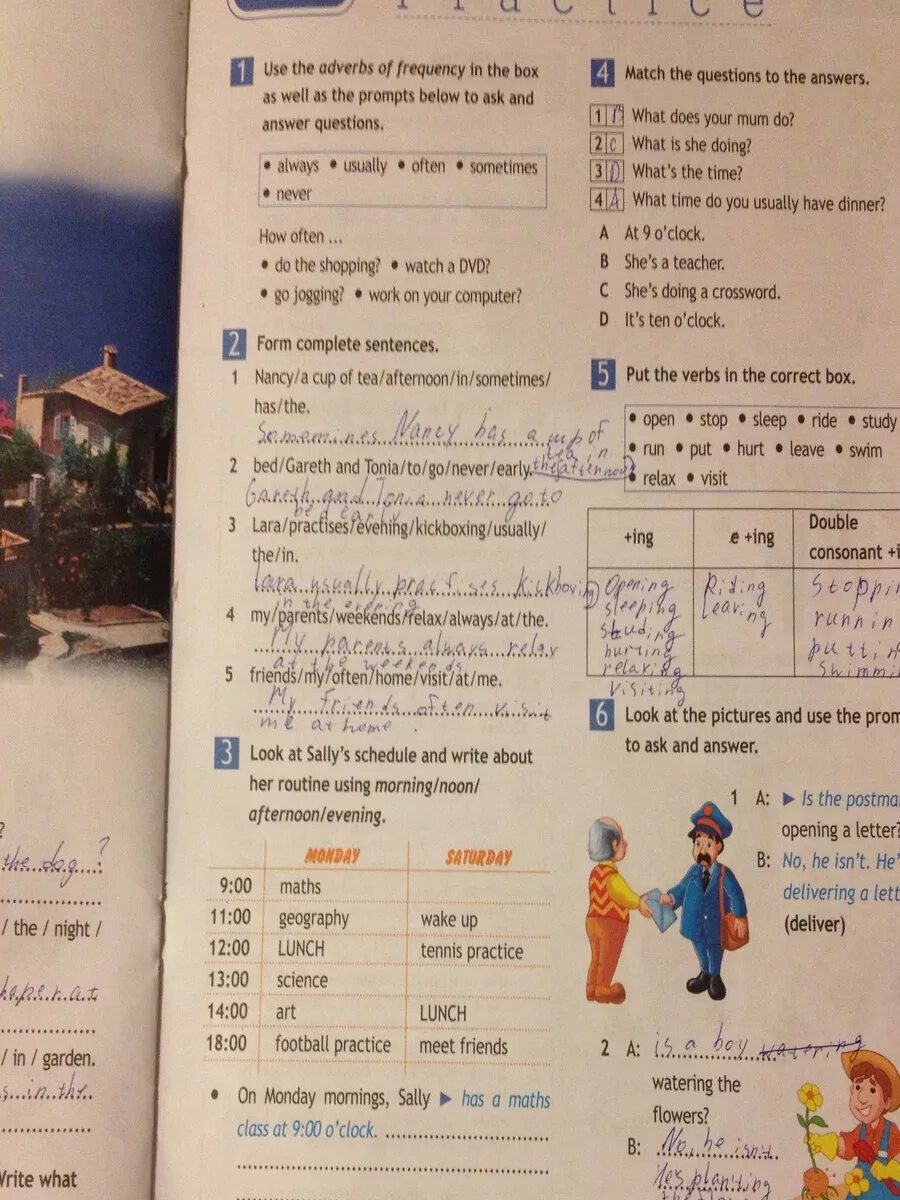 Practice
1 Use the adverbs of frequency in the box
as well as the prompts below to ask and
answer questions.
• always • usually • often • sometimes
• never
How often ...
• do the shopping? • watch a DVD?
• go jogging? • work on your computer?
2 Form complete sentences.
1 Nancy/a cup of tea/afternoon/in/sometimes/
has/the.
Nancy has a cup of
tea in
the afternoon
2 bed/Gareth and Tonia/to/go/never/early.
Gareth and Tonia never go to
bed early
3 Lara/practises/evening/kickboxing/usually/
the/in.
Lara usually practises kickboxing
in the evening
4 my/parents/weekends/relax/always/at/the.
My parents always relax
at the weekends
5 friends/my/often/home/visit/at/me.
My friends often visit
me at home.
3 Look at Sally's schedule and write about
her routine using morning/noon/
afternoon/evening.
MONDAY SATURDAY
9:00 maths
11:00 geography wake up
12:00 LUNCH tennis practice
13:00 science
14:00 art LUNCH
18:00 football practice meet friends
• On Monday mornings, Sally ▶ has a maths
class at 9:00 o'clock.
4 Match the questions to the answers.
1 What does your mum do?
2 C What is she doing?
3 D What's the time?
4 A What time do you usually have dinner?
A At 9 o'clock.
B She's a teacher.
C She's doing a crossword.
D It's ten o'clock.
5 Put the verbs in the correct box.
• open • stop • sleep • ride • study
• run • put • hurt • leave • swim
• relax • visit
+ing e +ing Double
consonant +i
Opening Riding Stoppin
sleeping leaving runnin
studing puttin
hurting swimmi
relaxing
visiting
6 Look at the pictures and use the prom
to ask and answer.
1 A: ▶ Is the postma
opening a letter?
B: No, he isn't. He'
delivering a lett
(deliver)
2 A: is a boy watering
watering the
flowers?
B: No, he isn't.
Hes planting
?
the dog ?
/ the / night /
/ in / garden.
in the
Write what